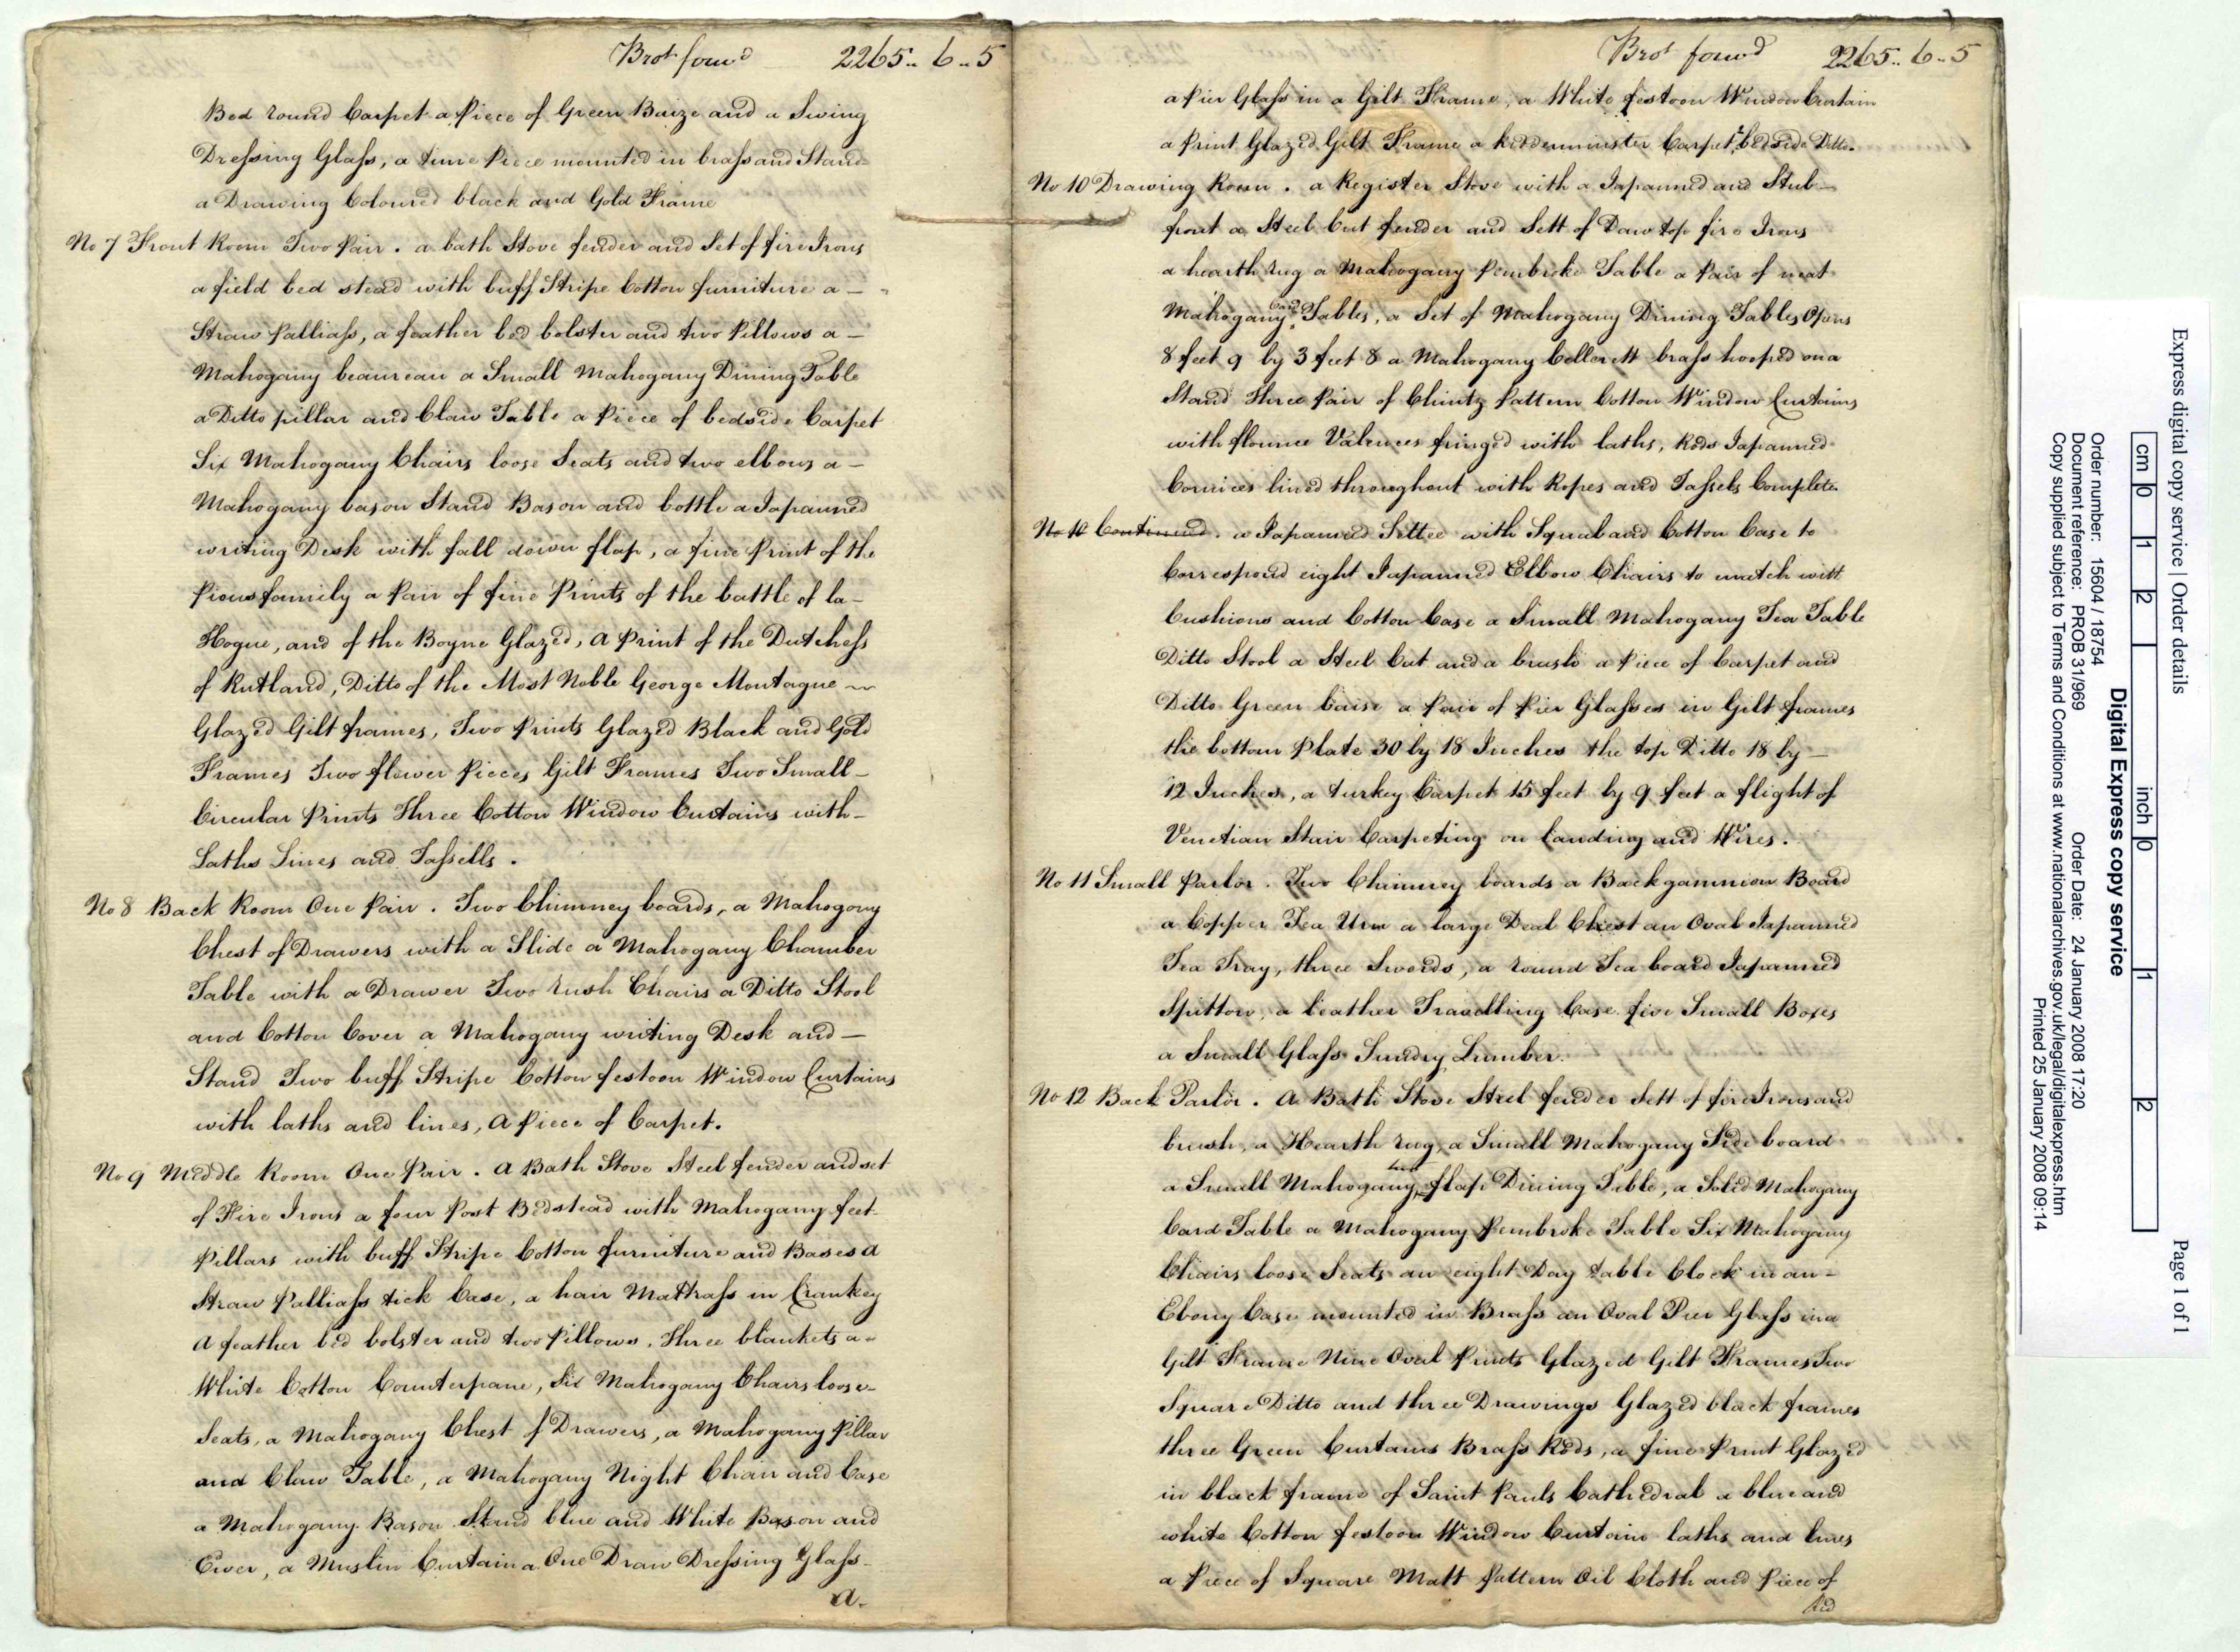 Brot forwd 2265.. 6.. 5
Bed round Carpet a Piece of Green Baize and a Swing
Dressing Glass, a time Piece mounted in brass and Stand
a Drawing Coloured black and Gold Frame
No 7 Front Room Two Pair . a bath Stove fender and Set of fire Irons
a field bed stead with buff Stripe Cotton furniture a –
Straw Palliass, a feather bed bolster and two Pillows a –
Mahogany beaureau a Small Mahogany Dining Table
a Ditto pillar and Claw Table a Piece of bedside Carpet
Six Mahogany Chairs loose Seats and two elbows a –
Mahogany bason Stand Bason and bottle a Japanned
writing Desk with fall down flap, a fine Print of the
Pious family a Pair of fine Prints of the battle of la –
Hogue, and of the Boyne Glazed, a Print of the Dutchess
of Rutland, Ditto of the Most Noble George Montague ~
Glazed Gilt frames, Two Prints Glazed Black and Gold
Frames Two flower Pieces Gilt Frames Two Small –
Circular Prints Three Cotton Window Curtains with –
Laths Lines and Tassells .
No 8 Back Room One Pair . Two Chimney boards, a Mahogony
Chest of Drawers with a Slide a Mahogany Chamber
Table with a Drawer Two rush Chairs a Ditto Stool
and Cotton Cover a Mahogany writing Desk and –
Stand Two buff Stripe Cotton festoon Window Curtains
with laths and lines, a Piece of Carpet.
No 9 Middle Room One Pair . a Bath Stove Steel fender and set
of Fire Irons a four Post Bedstead with Mahogany feet
Pillars with buff Stripe Cotton furniture and Bases a
Straw Palliass tick Case, a hair Mattrass in Crankey
a feather bed bolster and two Pillows, Three blankets a –
White Cotton Counterpane, Six Mahogany Chairs loose –
Seats, a Mahogany Chest of Drawers, a Mahogany Pillar
and Claw Table, a Mahogany Night Chair and Case
a Mahogany Bason Stand blue and White Bason and
Ewer, a Muslin Curtain a One Draw Dressing Glass –
a.
Brot forwd 2265.. 6.. 5
a Pier Glass in a Gilt Frame, a White festoon Window Curtain
a Print Glazed Gilt Frame a kidderminster Carpet & bedside Ditto.
No 10 Drawing Room . a Register Stove with a Japanned and Stub –
front a Steel Cut fender and Sett of Daw top fire Irons
a hearth rug a Mahogany Pembroke Table a Pair of neat
Mahogany Card Tables, a Set of Mahogany Dining Tables Opens
8 feet 9 by 3 feet 8 a Mahogany Cellerett brass hooped on a
Stand Three Pair of Chintz Pattern Cotton Window Curtains
with flounce Valences fringed with laths, Rods Japanned
Cornices lined throughout with Ropes and Tassels Complete
No 10 Continued . a Japanned Settee with Squab and Cotton Case to
Correspond eight Japanned Elbow Chairs to match with
Cushions and Cotton Case a Small Mahogany Tea Table
Ditto Stool a Steel Cat and a brush a Piece of Carpet and
Ditto Green baise a Pair of Pier Glasses in Gilt frames
the bottom Plate 30 by 18 Inches the top Ditto 18 by –
12 Inches, a turkey Carpet 15 feet by 9 feet a flight of
Venetian Stair Carpeting on landing and Wires .
No 11 Small Parlor . Two Chimney boards a Backgammon Board
a Copper Tea Urn a large Deal Chest an Oval Japanned
Tea Tray, three Swords, a round Tea board Japanned
Spittoon, a leather Travelling Case five Small Boxes
a Small Glass Sundry Lumber.
No 12 Back Parlor . a Bath Stove Steel fender Sett of fire Irons and
brush, a Hearth rug, a Small Mahogany Side board
a Small Mahogany two flap Dining Table, a Solid Mahogany
Card Table a Mahogany Pembroke Table Six Mahogany
Chairs loose Seats an eight Day table Clock in an –
Ebony Case mounted in Brass an Oval Pier Glass in a
Gilt Frame Nine Oval Prints Glazed Gilt Frames Two
Square Ditto and three Drawings Glazed black frames
three Green Curtains Brass Rods, a fine Print Glazed
in black frame of Saint Pauls Cathedral a blue and
white Cotton festoon Window Curtain laths and lines
a Piece of Square Matt Pattern Oil Cloth and Piece of
Red
Express digital copy service | Order details Page 1 of 1
cm 0 1 2 inch 0 1 2
Digital Express copy service
Order number: 15604 / 18754 Order Date: 24 January 2008 17:20
Document reference: PROB 31/969
Copy supplied subject to Terms and Conditions at www.nationalarchives.gov.uk/legal/digitalexpress.htm
Printed 25 January 2008 09:14